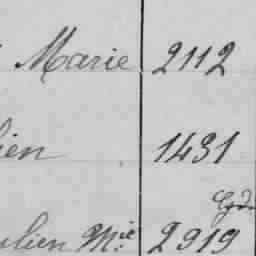 Marie 2112
ien 1431
ulien Mie 2919